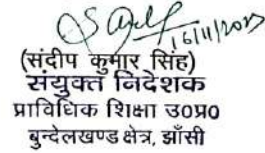 16/11/2023
(संदीप कुमार सिंह)
संयुक्त निदेशक
प्राविधिक शिक्षा उ०प्र०
बुन्देलखण्ड क्षेत्र, झाँसी